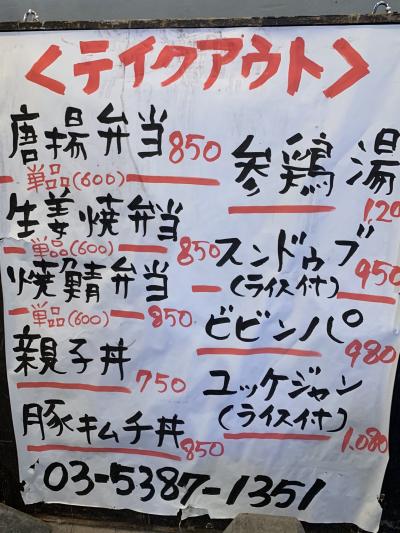 <テイクアウト>
唐揚弁当 850
単品(600)
生姜焼弁当 850
単品(600)
焼鯖弁当 850
単品(600)
親子丼 750
豚キムチ丼 850
参鶏湯
スンドゥブ 950
(ライス付)
ビビンパ 980
ユッケジャン
(ライス付) 1,080
03-5387-1351